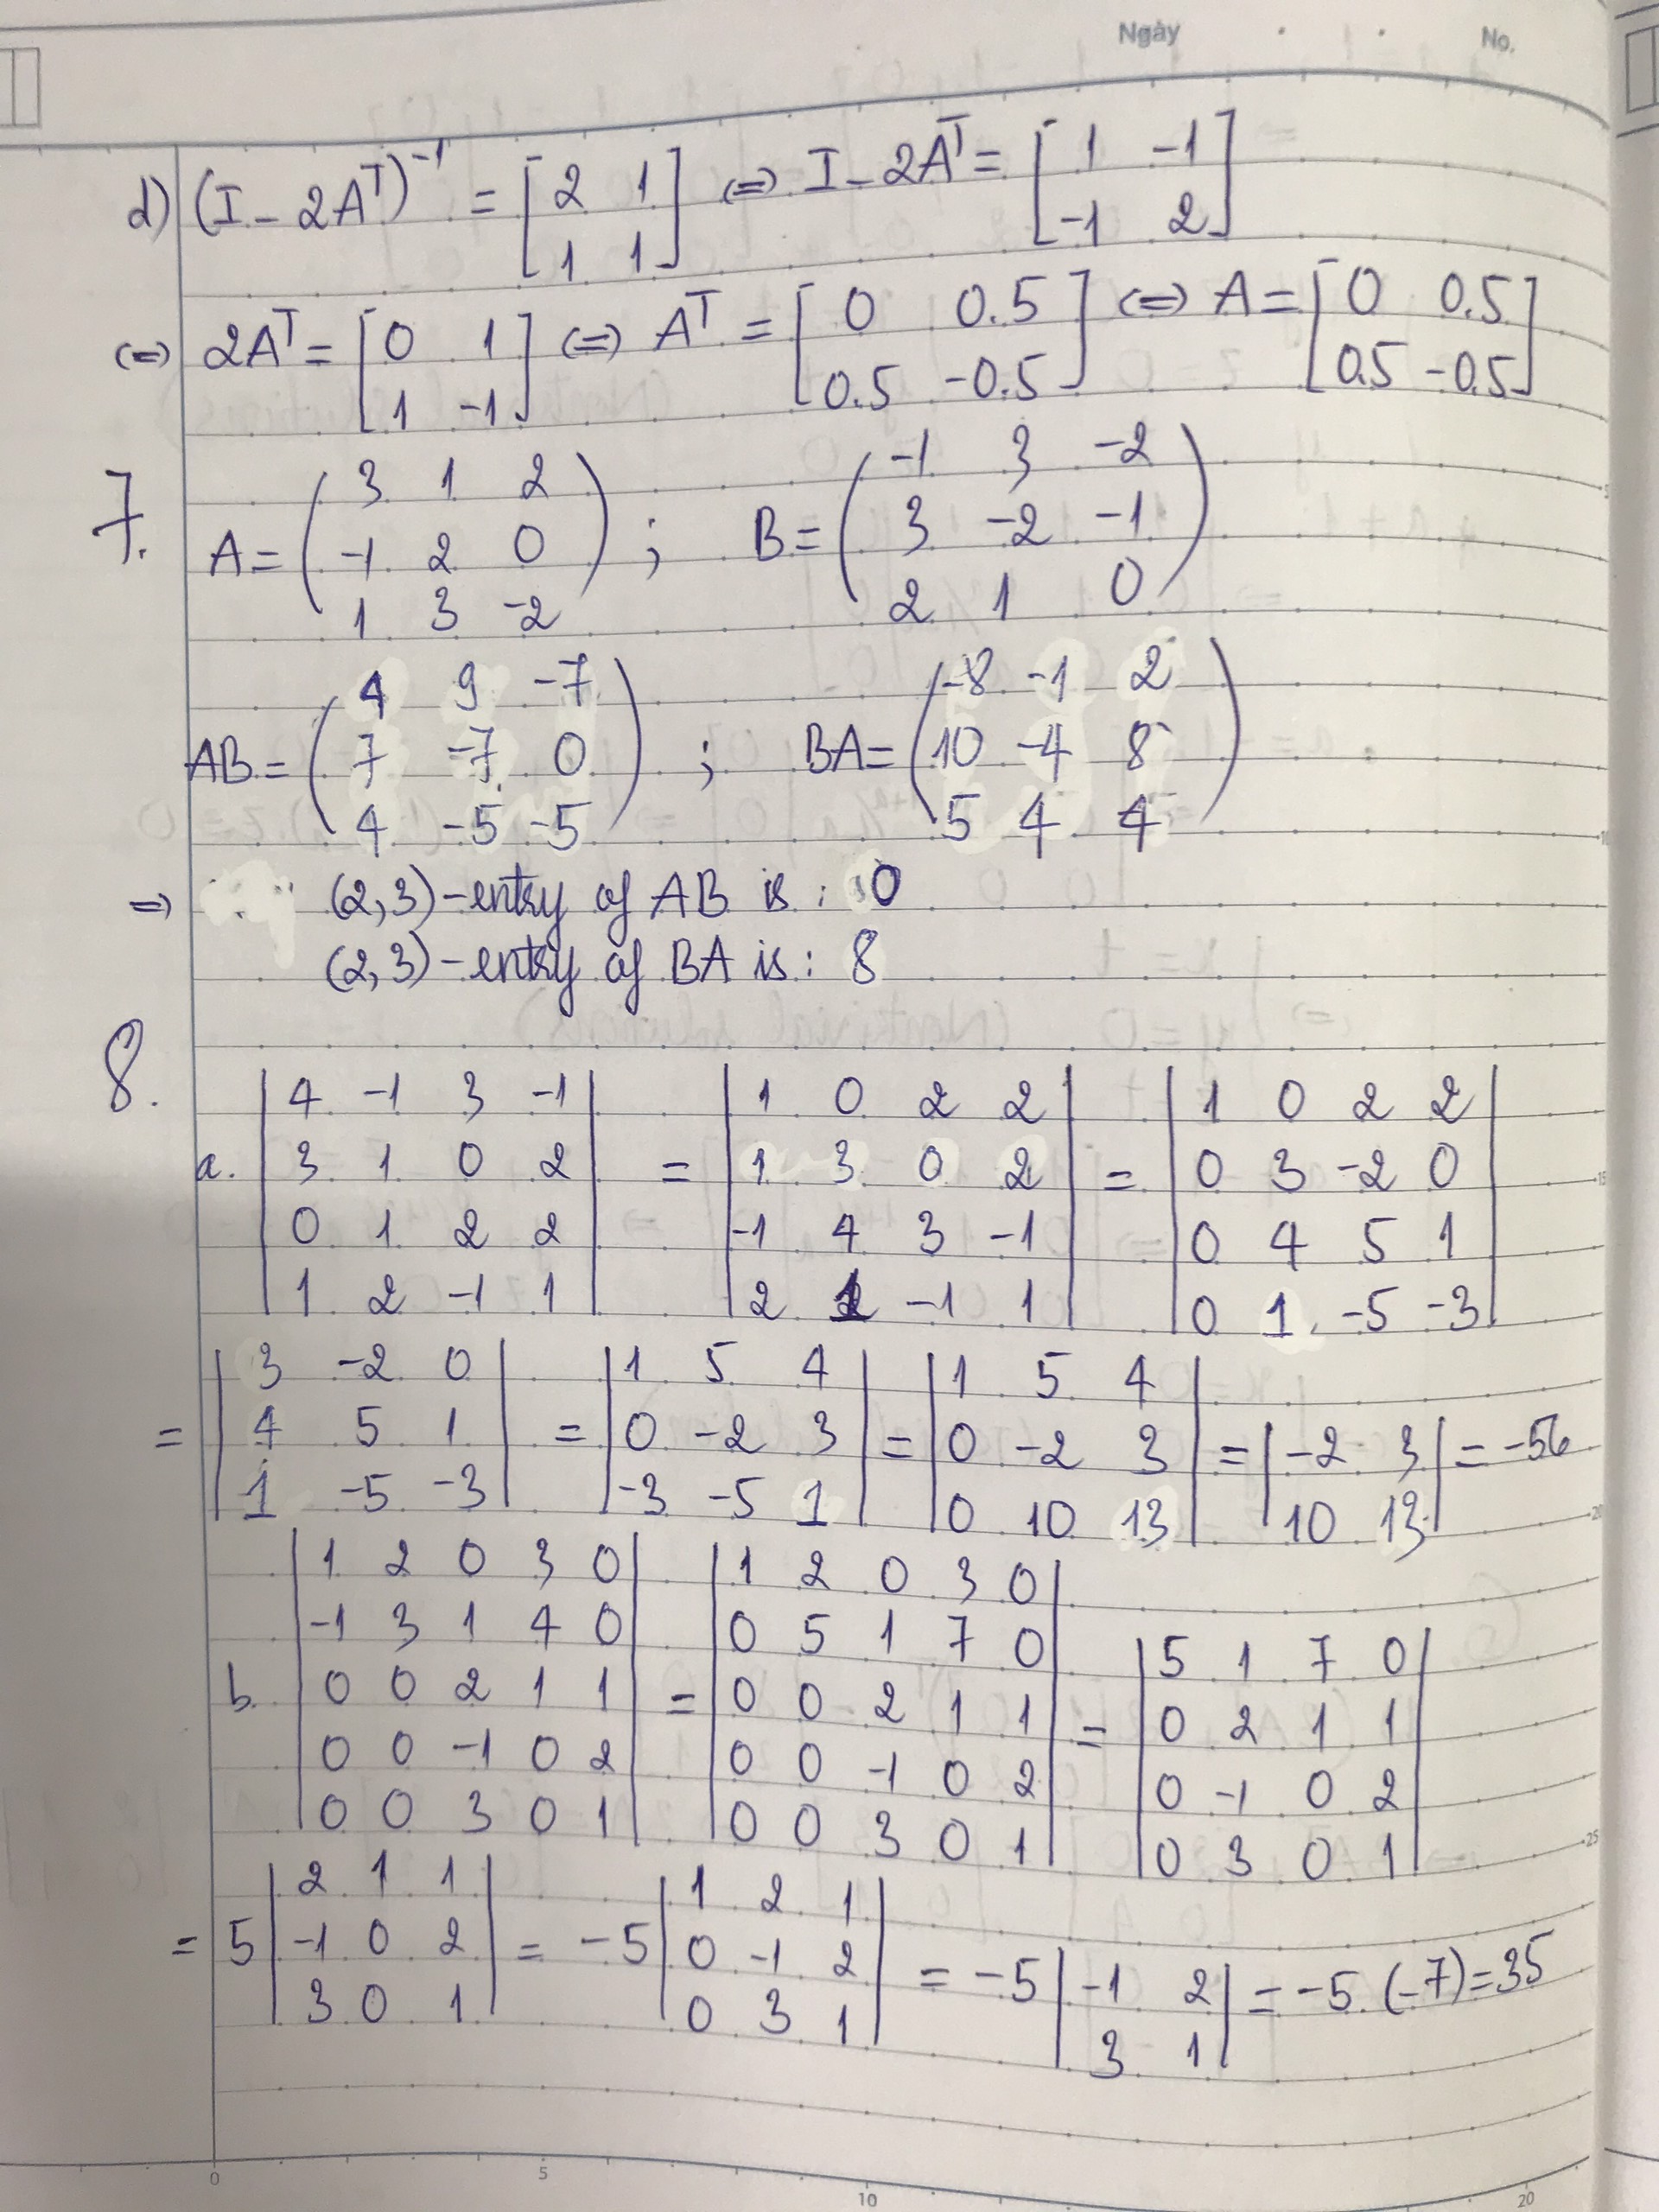 Ngày No.
d) (I - 2Aᵀ)⁻¹ = [2 1; 1 1] (=) I - 2Aᵀ = [1 -1; -1 2]
(=) 2Aᵀ = [0 1; 1 -1] (=) Aᵀ = [0 0.5; 0.5 -0.5] (=) A = [0 0.5; 0.5 -0.5]
7. A = (3 1 2; -1 2 0; 1 3 -2) ; B = (-1 3 -2; 3 -2 -1; 2 1 0)
AB = (4 9 -7; 7 -7 0; 4 -5 -5) ; BA = (-8 -1 2; 10 -4 8; 5 4 4)
=) (2,3)-entry of AB is : 0
(2,3)-entry of BA is : 8
8.
a. |4 -1 3 -1; 3 1 0 2; 0 1 2 2; 1 2 -1 1| = |1 0 2 2; 1 3 0 2; -1 4 3 -1; 2 1 -1 1| = |1 0 2 2; 0 3 -2 0; 0 4 5 1; 0 1 -5 -3|
= |3 -2 0; 4 5 1; 1 -5 -3| = |1 5 4; 0 -2 3; -3 -5 1| = |1 5 4; 0 -2 3; 0 10 13| = |-2 3; 10 13| = -56
b. |1 2 0 3 0; -1 3 1 4 0; 0 0 2 1 1; 0 0 -1 0 2; 0 0 3 0 1| = |1 2 0 3 0; 0 5 1 7 0; 0 0 2 1 1; 0 0 -1 0 2; 0 0 3 0 1| = |5 1 7 0; 0 2 1 1; 0 -1 0 2; 0 3 0 1|
= 5 |2 1 1; -1 0 2; 3 0 1| = -5 |1 2 1; 0 -1 2; 0 3 1| = -5 |-1 2; 3 1| = -5. (-7) = 35
0 5 10 20